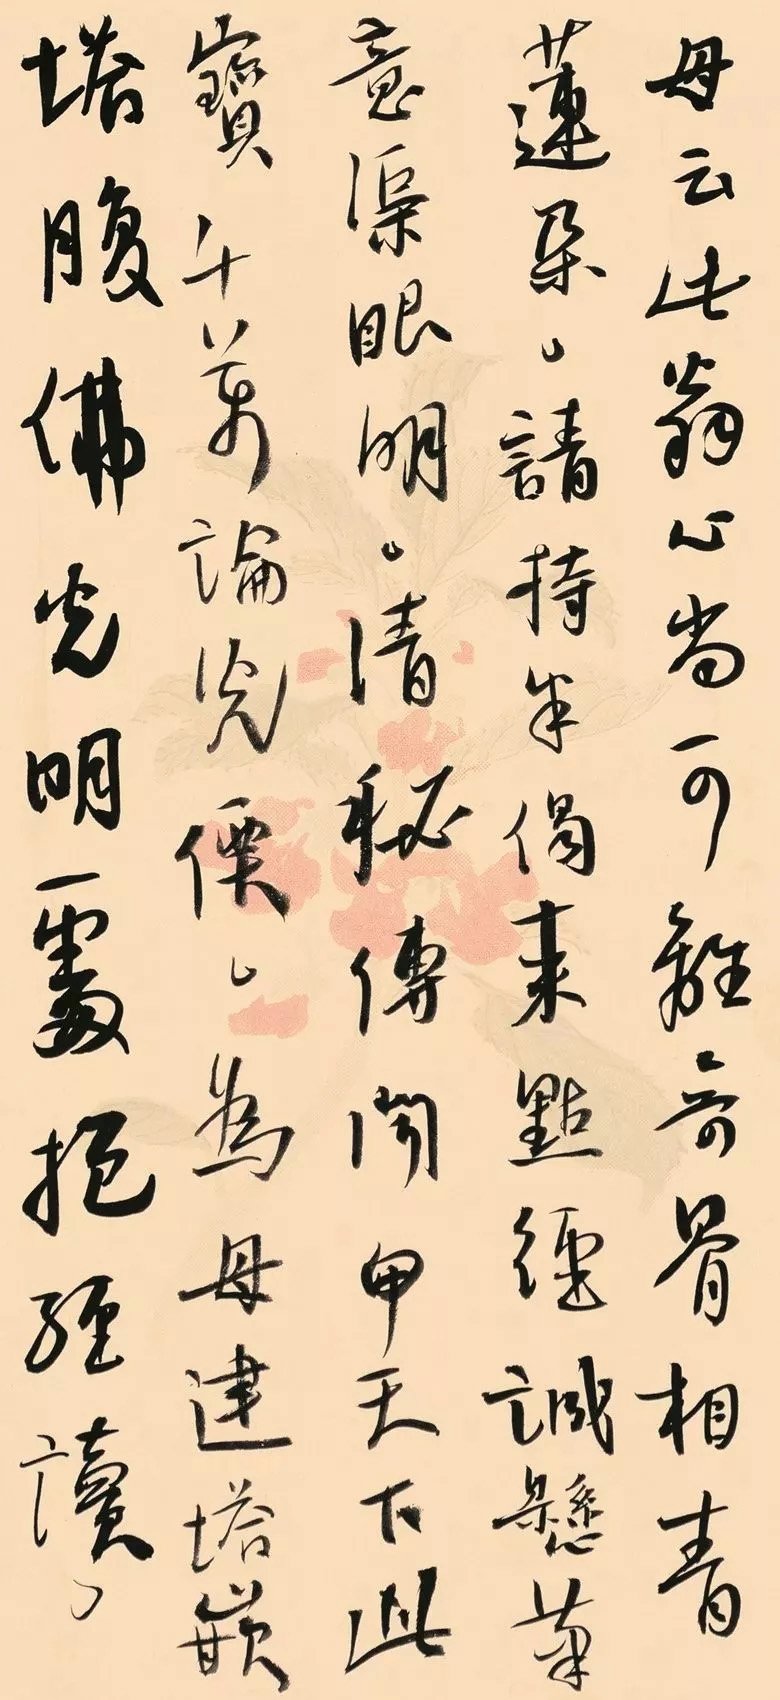 母云此翁心尚可離奇骨相青
蓮朵、請持半偈來點經誠懸筆
意渠眼明、清秘傳聞甲天下此
寶千萬論價、為母建塔嵌
塔腹佛光明處抱經讀、